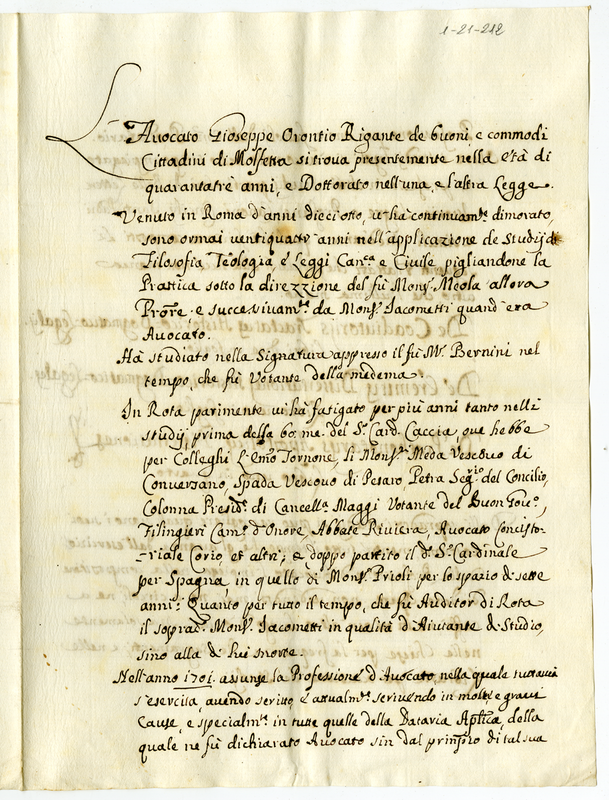 1-21-212
L'Avocato Gioseppe Orontio Rigante de buoni, e commodi
Cittadini di Molfetta si troua presentemente nella età di
quarantatrè anni, e Dottorato nell'una, e l'altra Legge.
Venuto in Roma d'anni dieciotto, ui hà continuam.te dimorato,
sono ormai uentiquattr'anni nell'applicazione de Studij di
Filosofia Teologia, e Leggi Can.ca e Ciuile pigliandone la
Prattica sotto la direzzione del fù Mons.r Meola allora
Prore, e successiuam.te da Mons.r Iacometti quand'era
Auocato.
Hà studiato nella Signatura appresso il fù M.r Bernini nel
tempo, che fù Votante della medema.
In Rota parimente ui hà fatigato per più anni tanto nelli
studij prima della bo: me: del S.r Card. Caccia, oue hebbe
per Colleghi L'Emo Tornone, li Mons.ri Meda Vescouo di
Conuerzano, Spada Vescouo di Pesaro, Petra Seg.rio del Concilio,
Colonna Presid.e di Cancell.a Maggi Votante del Buon Gou.o,
Filingieri Cam.e d'Onore, Abbate Riuiera, Auocato Concisto-
-riale Corio, et altri; e doppo partito il d.o S.r Cardinale
per Spagna, in quello di Mons.r Prioli per lo spazio di sette
anni; Quanto per tutto il tempo, che fù Auditor di Rota
il soprad.o Mons.r Iacometti in qualità d'Aiutante di Studio,
sino alla di lui morte.
Nell'anno 1701. assunse la Professione d'Auocato, nella quale tuttauia
s'esercita, auendo scritto, e attualm.te scriuendo in molte, e graui
Cause, e specialm.te in tutte quelle della Dataria Aplica, della
quale ne fù dichiarato Auocato sin dal prinpio di tal sua